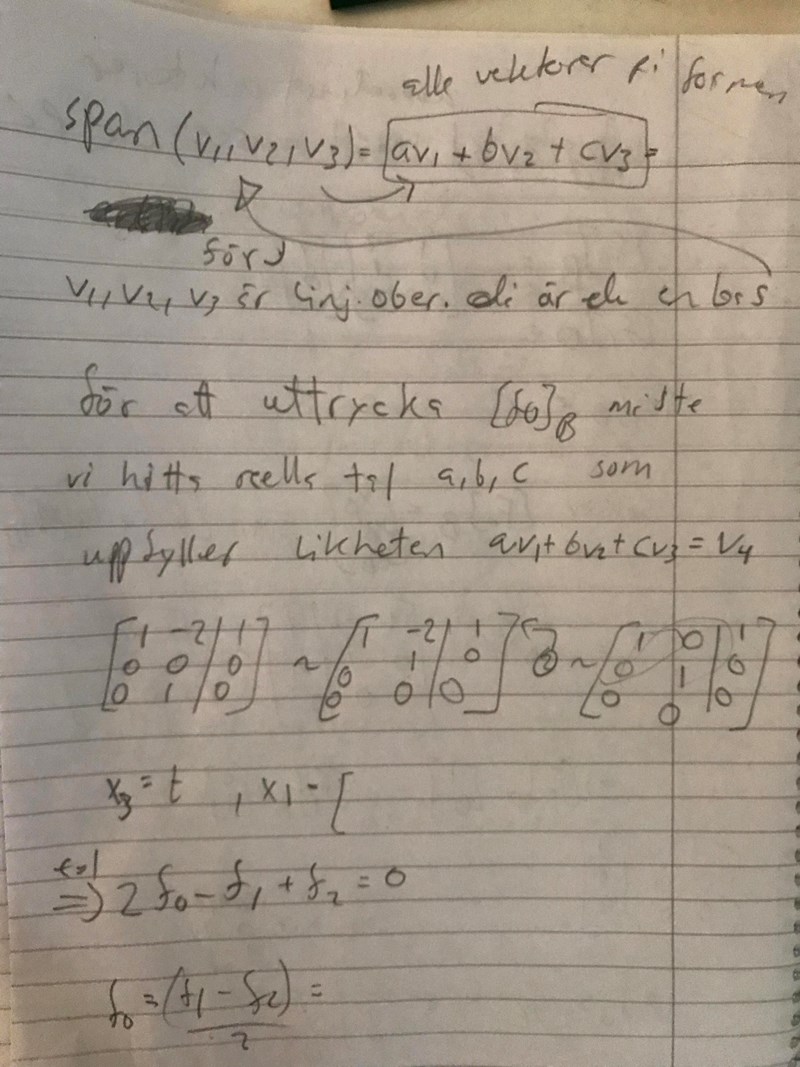 alle vektorer på formen
span(v₁, v₂, v₃) = av₁ + bv₂ + cv₃ =
för
v₁, v₂, v₃ är linj. ober. är en bas
för att uttrycka [f0]_B måste
vi hitta reella tal a, b, c som
uppfyller likheten av₁ + bv₂ + cv₃ = v₄
[1 -2 | 1] ~ [1 -2 | 1] ~ [1 0 | 1]
[0 0 | 0] [0 1 | 0] [0 1 | 0]
[0 1 | 0] [0 0 | 0] [0 0 | 0]
x₃ = t , x₁ = [
t=1
=> 2f₀ - f₁ + f₂ = 0
f₀ = (f₁ - f₂) =
2